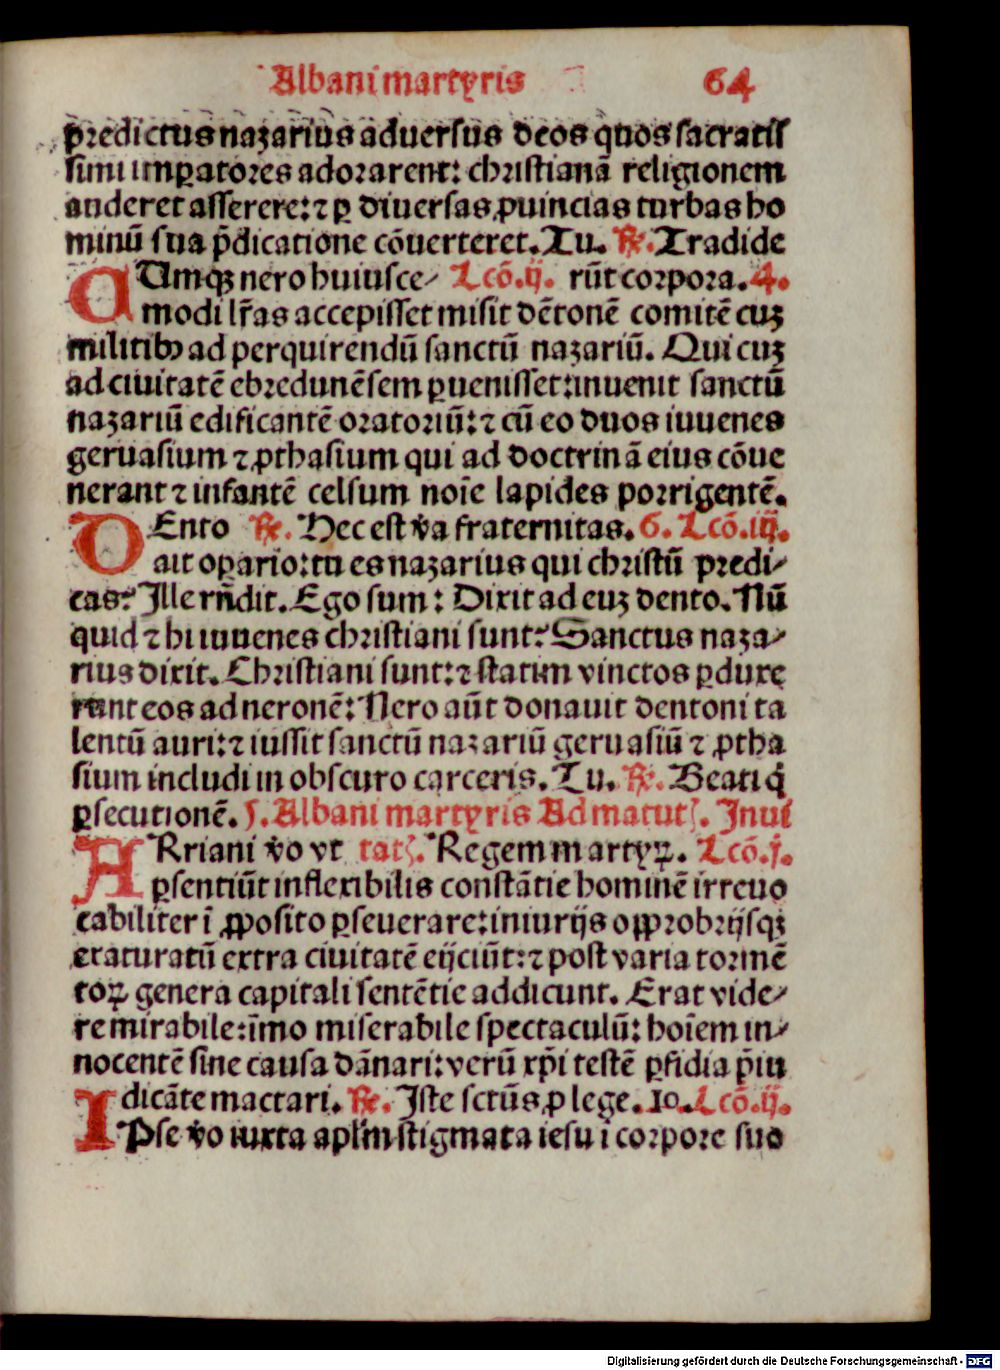 Albani martyris 64
predictus nazarius aduersus deos quos sacratis
simi imꝑatores adorarent: christianā religionem
auderet asserere: ⁊ ꝑ diuersas ꝓuincias turbas ho
minū sua p̄dicatione cōuerteret. Tu. ℞. Tradide
CUmqꝫ nero huiusce⸗ Lcō.ij. rūt corpora. 4.
modi lr̄as accepisset misit dētonē comitē cuꝫ
militibꝰ ad perquirendū sanctū nazariū. Qui cuꝫ
ad ciuitatē ebredunēsem ꝑuenisset: inuenit sanctū
nazariū edificantē oratoriū: ⁊ cū eo duos iuuenes
geruasium ⁊ ꝓthasium qui ad doctrinā eius cōue
nerant ⁊ infantē celsum noīe lapides porrigentē.
DEnto ℞. Hec est v̄a fraternitas. 6. Lcō.iij.
ait oꝑario: tu es nazarius qui christū predi⸗
cas? Ille rn̄dit. Ego sum: Dixit ad euꝫ dento. Nū
quid ⁊ hi iuuenes christiani sunt? Sanctus naza⸗
rius dixit. Christiani sunt: ⁊ statim vinctos ꝑduxe
runt eos ad neronē: Nero aūt donauit dentoni ta
lentū auri: ⁊ iussit sanctū nazariū geruasiū ⁊ ꝓtha
sium includi in obscuro carceris. Tu. ℞. Beati q̇
ꝑsecutionē. ſ. Albani martyris Ad matutꝭ. Inui
ARriani v̄o vt tatꝭ. Regem martyꝝ. Lcō.j.
ꝑsentiūt inflexibilis constātie hominē irreuo
cabiliter ī ꝓposito ꝑseuerare: iniurijs opprobrijsqꝫ
exaturatū extra ciuitatē eijciūt: ⁊ post varia tormē
toꝝ genera capitali sentētie addicunt. Erat vide⸗
re mirabile: īmo miserabile spectaculū: hoīem in⸗
nocentē sine causa dānari: verū xp̄i testē ꝑfidia p̄iu
dicāte mactari. ℞. Iste sctūs ꝓ lege. 10. Lcō.ij.
IPse v̄o iuxta apl̄m stigmata iesu ī corpore suo
Digitalisierung gefördert durch die Deutsche Forschungsgemeinschaft - DFG